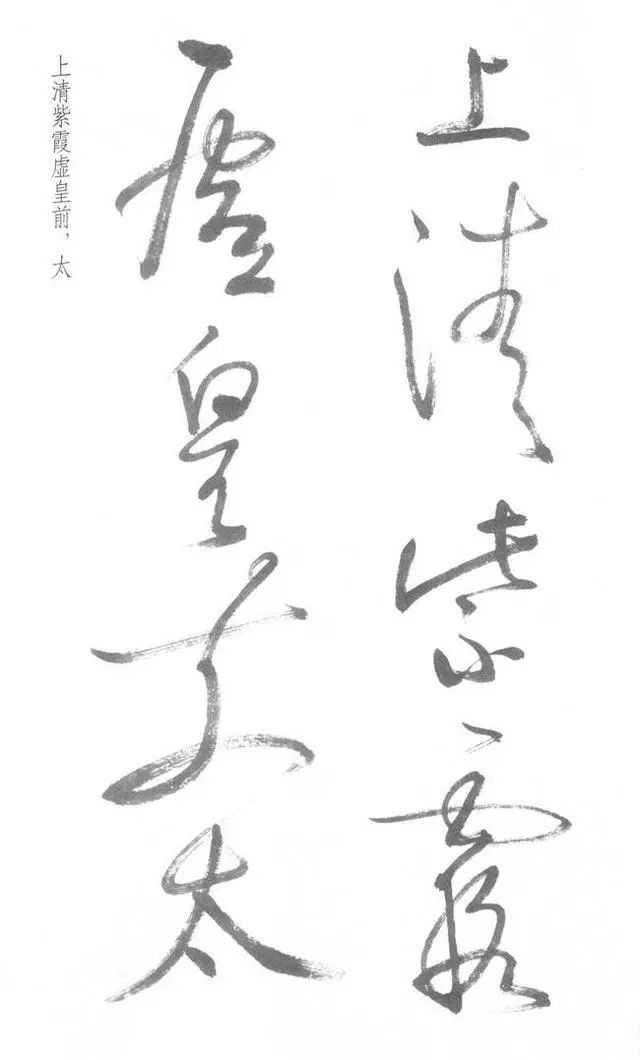 上清紫霞
虚皇前太
上清紫霞虚皇前，太